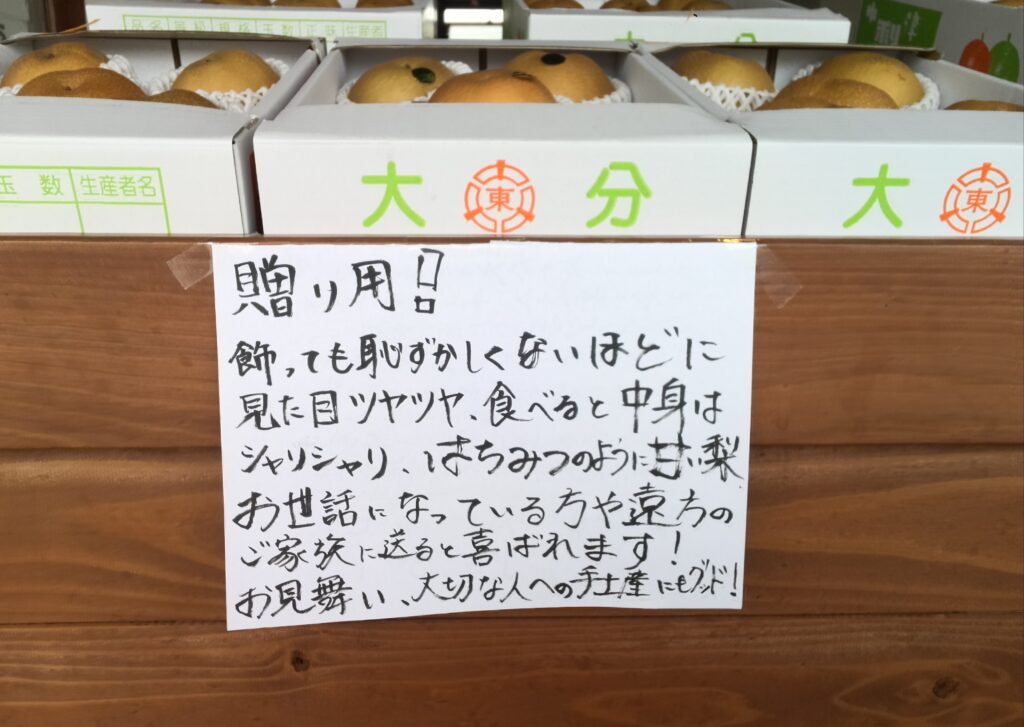 品名 等級 規格 玉数 正味 生産者
大
大
中津
玉数 生産者名
大 東 分
大 東
贈り用!
飾っても恥ずかしくないほどに
見た目ツヤツヤ、食べると中身は
シャリシャリ、はちみつのように甘い梨
お世話になっている方や遠方の
ご家族に送ると喜ばれます!
お見舞い、大切な人への手土産にもグッド!